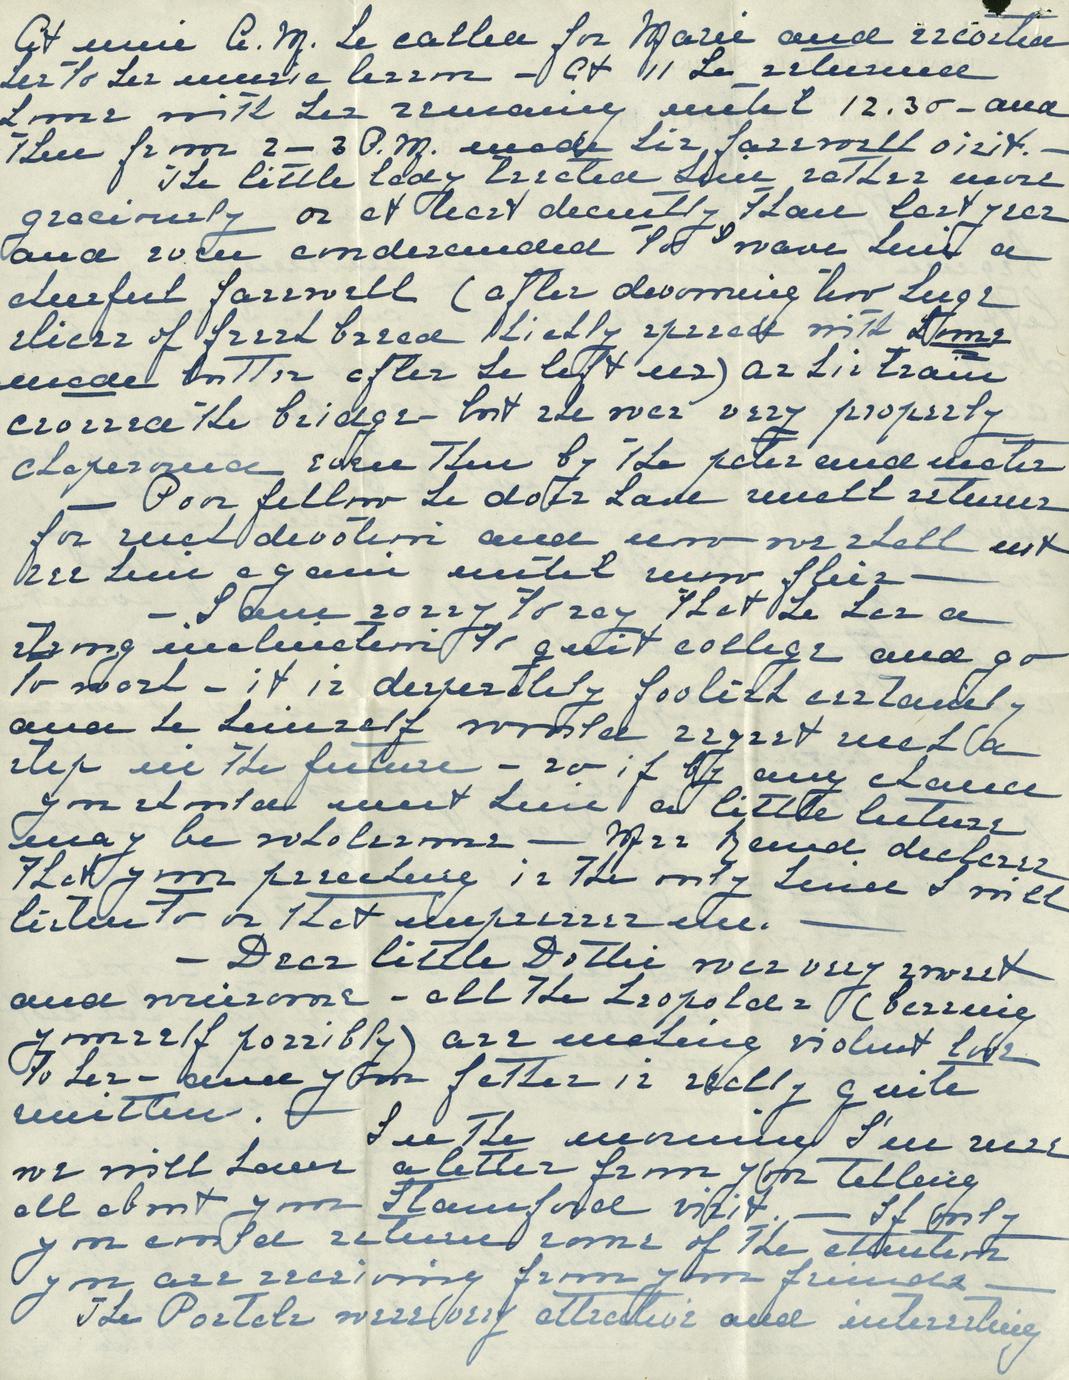 At nine A.M. he called for Marie and escorted
her to her music lesson – At 11 he returned
home with her remaining until 12.30 – and
then from 2 – 3 P.M. made his farewell visit. –
The little lady treated him rather more
graciously or at least decently than last year
and even condescended to wave him a
cheerful farewell (after devouring two huge
slices of fresh bread thickly spread with home
made butter after he left us) as his train
crossed the bridge – but she was very properly
chaperoned even then by the pater and mater
– Poor fellow he does have small returns
for such devotion and now we shall not
see him again until
– I am sorry to say that he has a
strong inclination to quit college and go
to work – it is desperately foolish certainly
and he himself would regret such a
step in the future – so if by any chance
you should meet him a little lecture
may be wholesome – Mrs declares
that your preaching is the only kind I will
listen to or that impresses me. –
– Dear little Dottie was very sweet
and winsome – all the Leopolds (barring
yourself possibly) are making violent love
to her – and your father is really quite
smitten. –
In the morning I'm sure
we will have a letter from you telling
all about your Stamford visit. – If only
you could return some of the attention
you are receiving from your friends –
The were very attractive and interesting